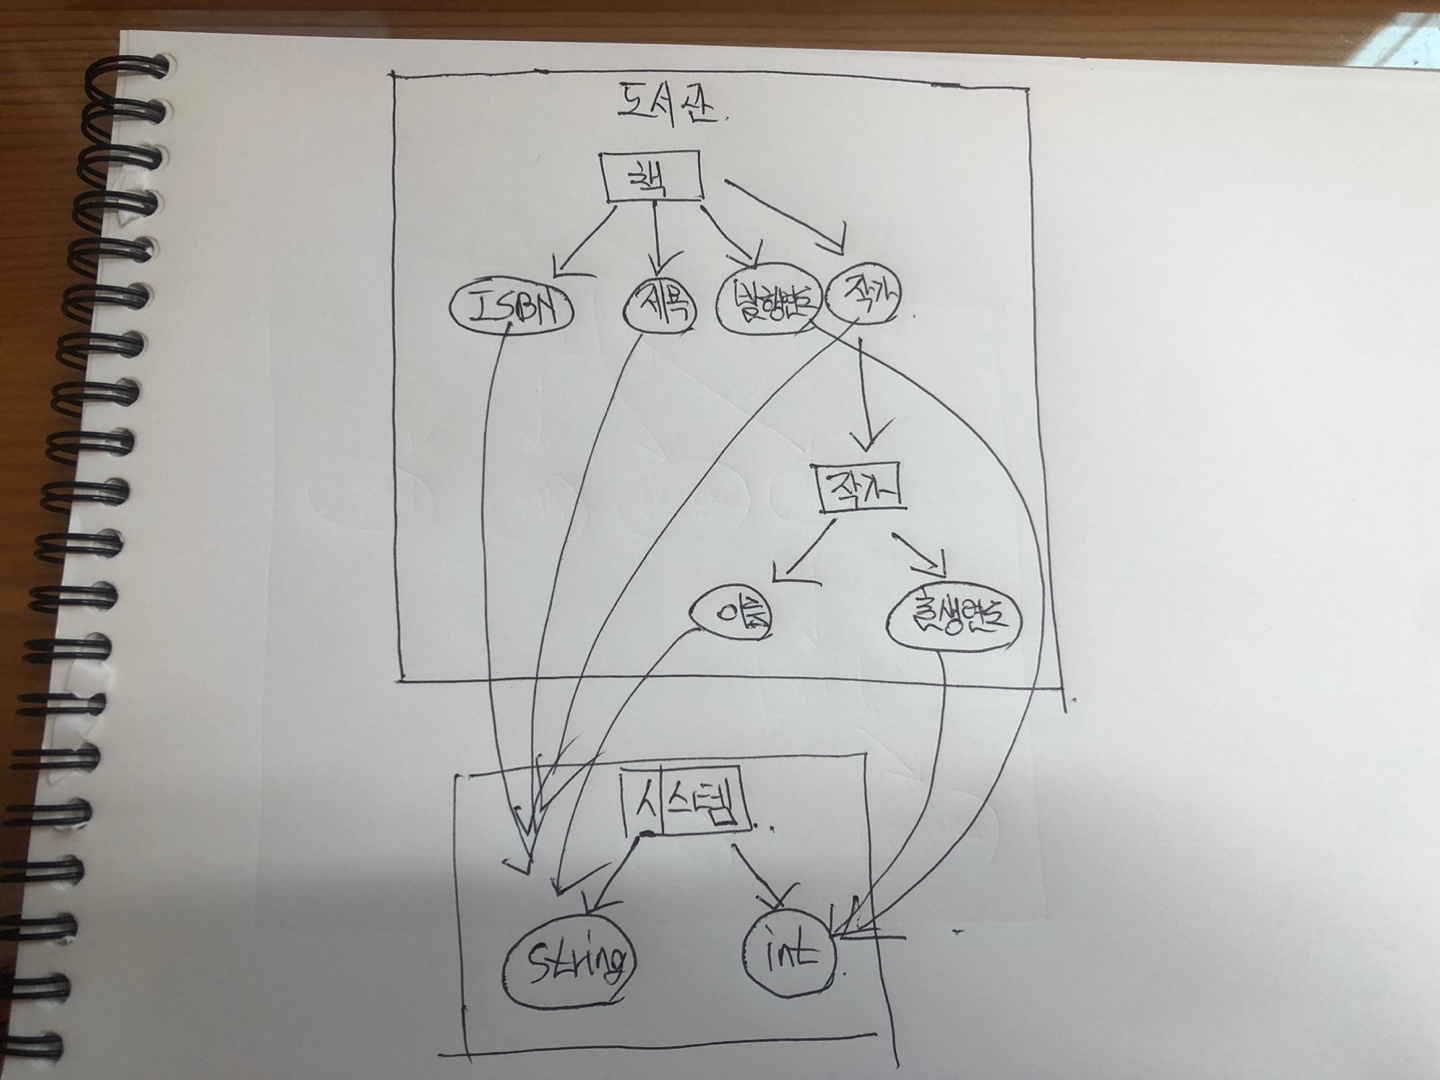 도서관
책
ISBN
제목
발행연도
작가
작가
이름
출생연도
시스템
string
int